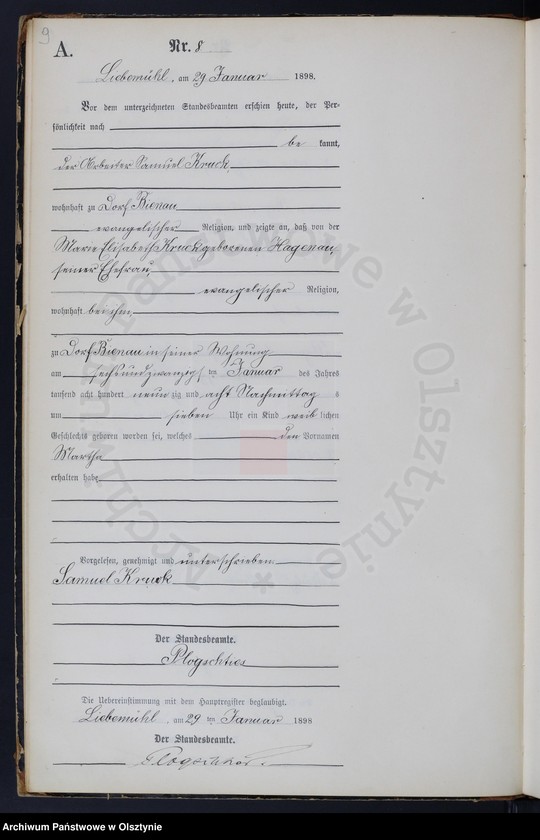 9
A.
Nr. 8
Liebemühl, am 29 Januar 1898.
Vor dem unterzeichneten Standesbeamten erschien heute, der Per-
sönlichkeit nach
be kannt,
der Arbeiter Samuel Kruck,
wohnhaft zu Dorf Bienau
evangelischer Religion, und zeigte an, daß von der
Marie Elisabeth Kruck geborenen Hagenau,
seiner Ehefrau
evangelischer Religion,
wohnhaft bei ihm,
zu Dorf Bienau in seiner Wohnung
am sechsundzwanzigsten Januar des Jahres
tausend acht hundert neun zig und acht Nachmittag s
um sieben Uhr ein Kind weib lichen
Geschlechts geboren worden sei, welches den Vornamen
Martha
erhalten habe
Vorgelesen, genehmigt und unterschrieben
Samuel Kruck
Der Standesbeamte.
Plogschties
Die Uebereinstimmung mit dem Hauptregister beglaubigt.
Liebemühl, am 29 ten Januar 1898
Der Standesbeamte.
Archiwum Państwowe w Olsztynie
Archiwum Państwowe w Olsztynie